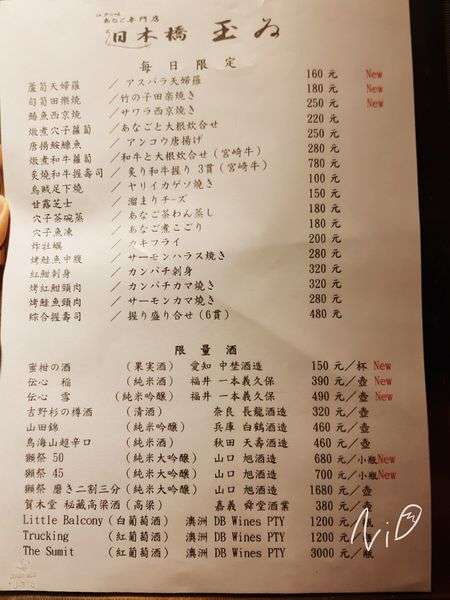 あなご専門店
日本橋 玉ゐ
每日限定
蘆筍天婦羅 / アスパラ天婦羅 160 元 New
旬筍田樂燒 / 竹の子田楽焼き 180 元 New
鰆魚西京燒 / サワラ西京焼き 250 元 New
燉煮穴子蘿蔔 / あなごと大根炊合せ 220 元
唐揚鮟鱇魚 / アンコウ唐揚げ 250 元
燉煮和牛蘿蔔 / 和牛と大根炊合せ (宮崎牛) 280 元
炙燒和牛握壽司 / 炙り和牛握り 3貫 (宮崎牛) 780 元
烏賊足下燒 / ヤリイカゲソ焼き 100 元
甘露芝士 / 溜まりチーズ 150 元
穴子茶碗蒸 / あなご茶わん蒸し 180 元
穴子魚凍 / あなご煮こごり 180 元
炸牡蠣 / カキフライ 200 元
烤鮭魚中腹 / サーモンハラス焼き 280 元
紅魽刺身 / カンパチ刺身 320 元
烤紅魽頭肉 / カンパチカマ焼き 320 元
烤鮭魚頭肉 / サーモンカマ焼き 280 元
綜合握壽司 / 握り盛り合せ (6貫) 480 元
限量酒
蜜柑の酒 (果実酒) 愛知 中埜酒造 150 元/杯 New
伝心 稲 (純米酒) 福井 一本義久保 390 元/壺 New
伝心 雪 (純米吟醸) 福井 一本義久保 490 元/壺 New
吉野杉の樽酒 (清酒) 奈良 長龍酒造 320 元/壺
山田錦 (純米吟醸) 兵庫 白鶴酒造 460 元/壺
鳥海山超辛口 (純米酒) 秋田 天壽酒造 460 元/壺
獺祭 50 (純米大吟醸) 山口 旭酒造 680 元/小瓶New
獺祭 45 (純米大吟醸) 山口 旭酒造 700 元/小瓶New
獺祭 磨き二割三分 (純米大吟醸) 山口 旭酒造 1680 元/壺
賀木堂 秘藏高梁酒 (高梁) 嘉義 舜堂酒業 380 元/壺
Little Balcony (白葡萄酒) 澳洲 DB Wines PTY 1200 元/瓶
Trucking (紅葡萄酒) 澳洲 DB Wines PTY 1200 元/瓶
The Sumit (紅葡萄酒) 澳洲 DB Wines PTY 3000 元/瓶